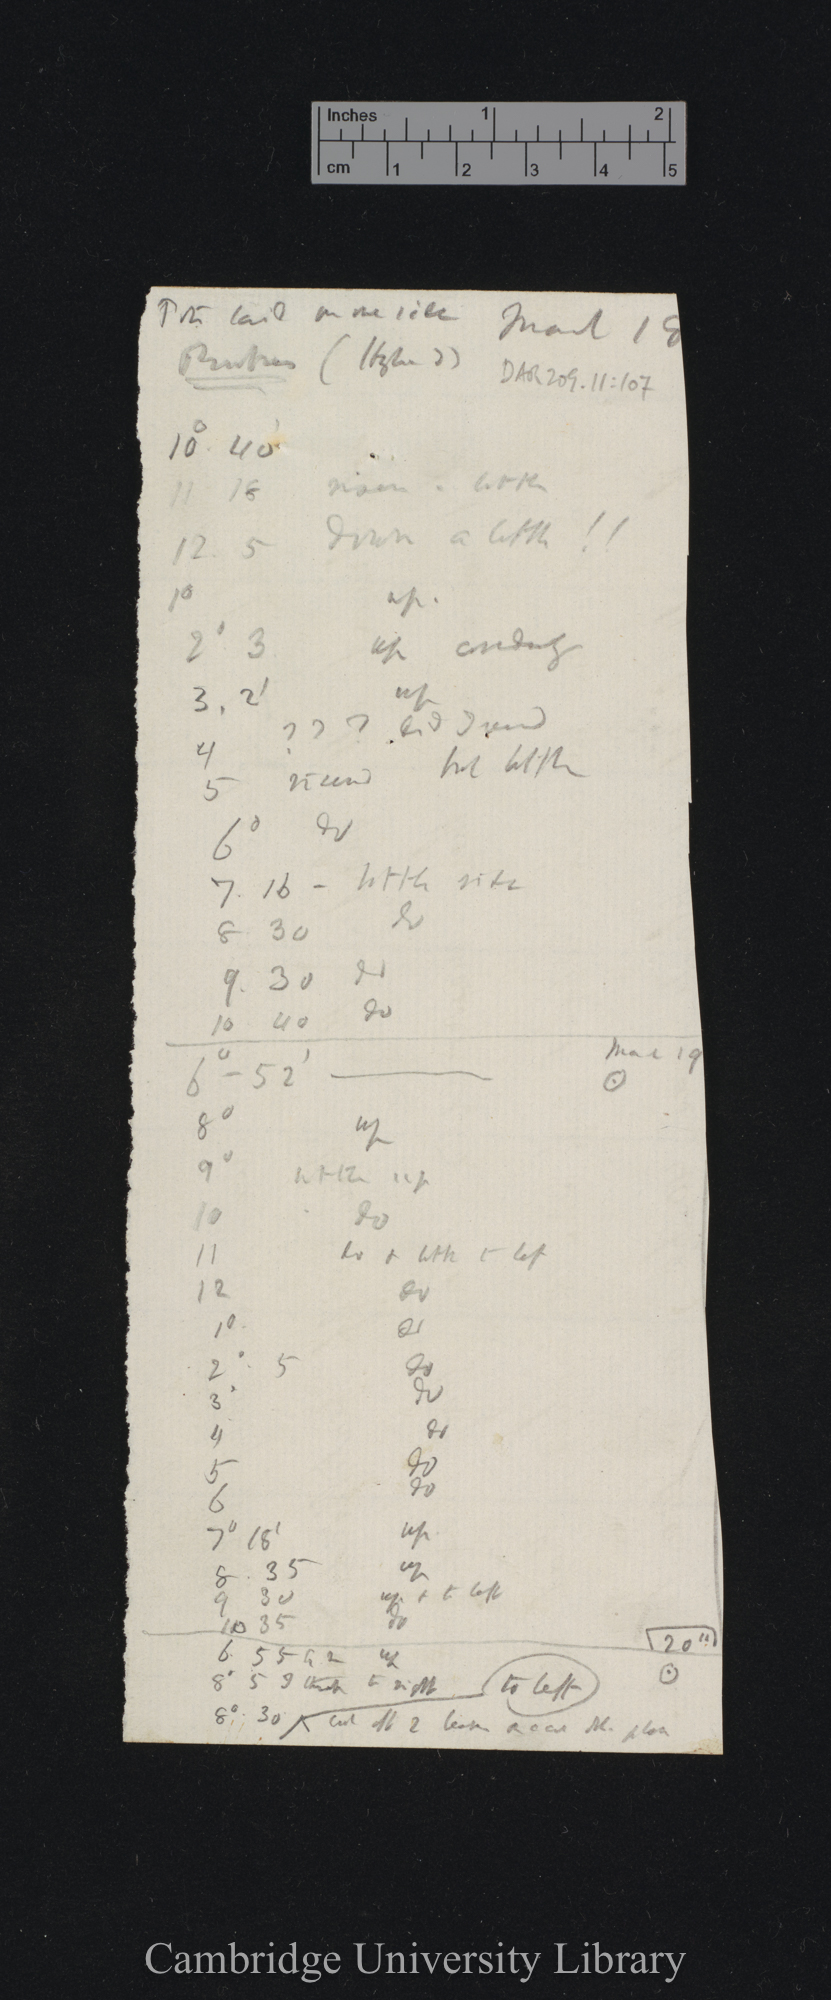 Inches 1 2
cm 1 2 3 4 5
Pot laid on one side March 18
(Higher 2)
DAR 209.11:107
10° 40'
11 18 risen a little
12. 5 Down a little !!
1° up.
2° 3 up
3, 2' up
4 ? ? ?
5 but little
6° do
7. 16 – little rise
8 30 do
9. 30 do
10 40 do
6° – 52' March 19
8° up
9° little up
10 do
11 do + little to left
12 do
1° do
2° 5 do
3° do
4 do
5 do
6 do
7° 18' up
8. 35 up
9 30 up + to left
10 35 do
20"
6. 55 up
8° 5 I think to right to left
8° 30 cut off 2
Cambridge University Library